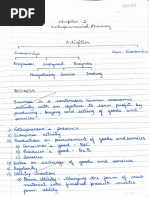 Chapter - 2
Entrepreneurial Planning
Activities
Economics
Non - Economics
Business Employment Profession
Manufacturing Service Trading
BUSINESS
Business is a continuous human economic
activity with an aim to earn profit by
producing, buying and selling of goods and
services
1) Entrepreneur's presence
2) Economic activity
3) Production or procurement of goods and services
Consumer's good - B2C
Producer's good - B2B
Services
goods and
services
Utility Creation
Form Utility - Changing the form of raw
material into finished products enables
form utility